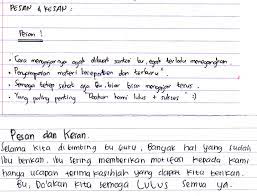 PESAN & KESAN :
Pesan :
• Cara mengajarnya agak dibuat santai bu, agar terlalu menegangkan.
• Penyampaian materi kecepatan dan terburu".
• Semoga tetap sehat aja Bu, biar bisa mengajar terus.
• Yang paling penting "Doakan kami lulus + sukses" :)
Pesan dan Kesan.
Selama kita dibimbing bu Guru, Banyak hal yang sudah
Ibu berikan. Ibu sering memberikan motivasi kepada kami
hanya ucapan terima kasihlah yang dapat kita berikan.
Bu, Do'akan kita semoga Lulus semua ya.